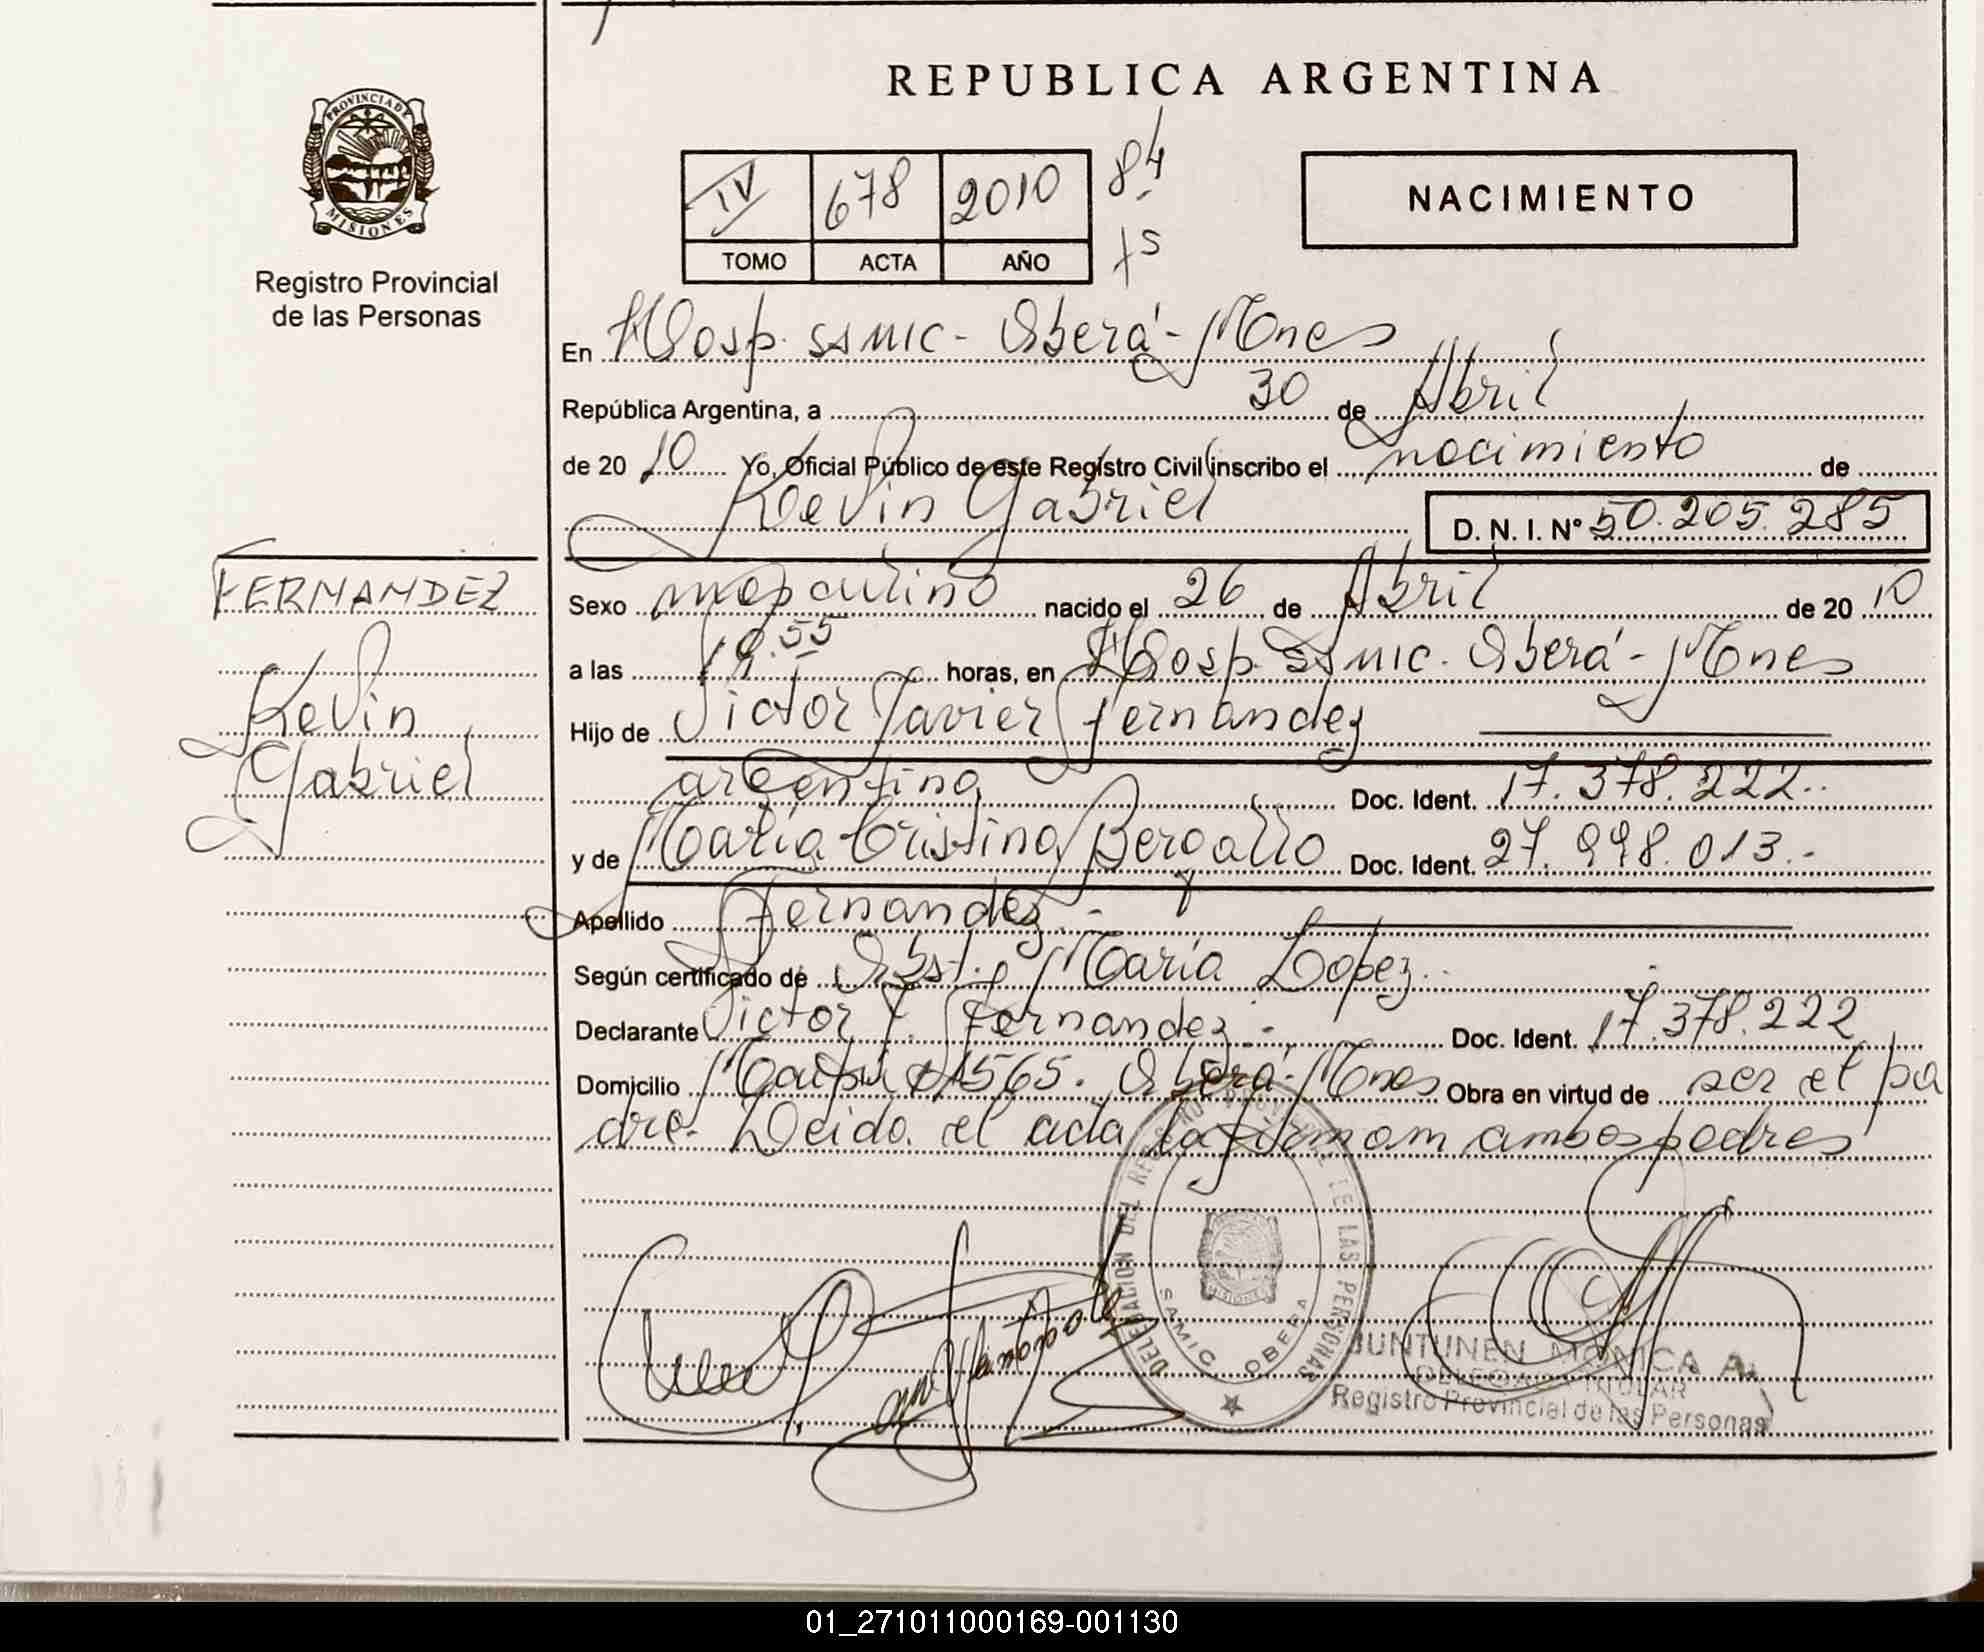 REPUBLICA ARGENTINA
PROVINCIA DE
MISIONES
Registro Provincial
de las Personas
IV 678 2010 84
TOMO ACTA AÑO
NACIMIENTO
En Hosp. SAMIC - Oberá - Mnes
República Argentina, a 30 de Abril
de 20 10 Yo, Oficial Público de este Registro Civil inscribo el nacimiento de
Kevin Gabriel D. N. I. Nº 50.205.285
FERNANDEZ
Kevin
Gabriel
Sexo masculino nacido el 26 de Abril de 20 10
a las 19.55 horas, en Hosp. SAMIC. Oberá - Mnes
Hijo de Victor Javier Fernandez
argentino Doc. Ident. 17.378.222.-
y de María Cristina Bergallo Doc. Ident. 27.998.013.-
Apellido Fernandez.-
Según certificado de Obst. María Lopez.
Declarante Victor J. Fernandez.- Doc. Ident. 17.378.222
Domicilio Maipú 1565. Oberá - Mnes Obra en virtud de ser el pa
dre. Leida el acta la firman ambos padres
DELEGACION DEL REGISTRO PROVINCIAL DE LAS PERSONAS
SAMIC OBERA
MISIONES
JUNTUNEN MONICA A.
DELEGADA TITULAR
Registro Provincial de las Personas
01_271011000169-001130